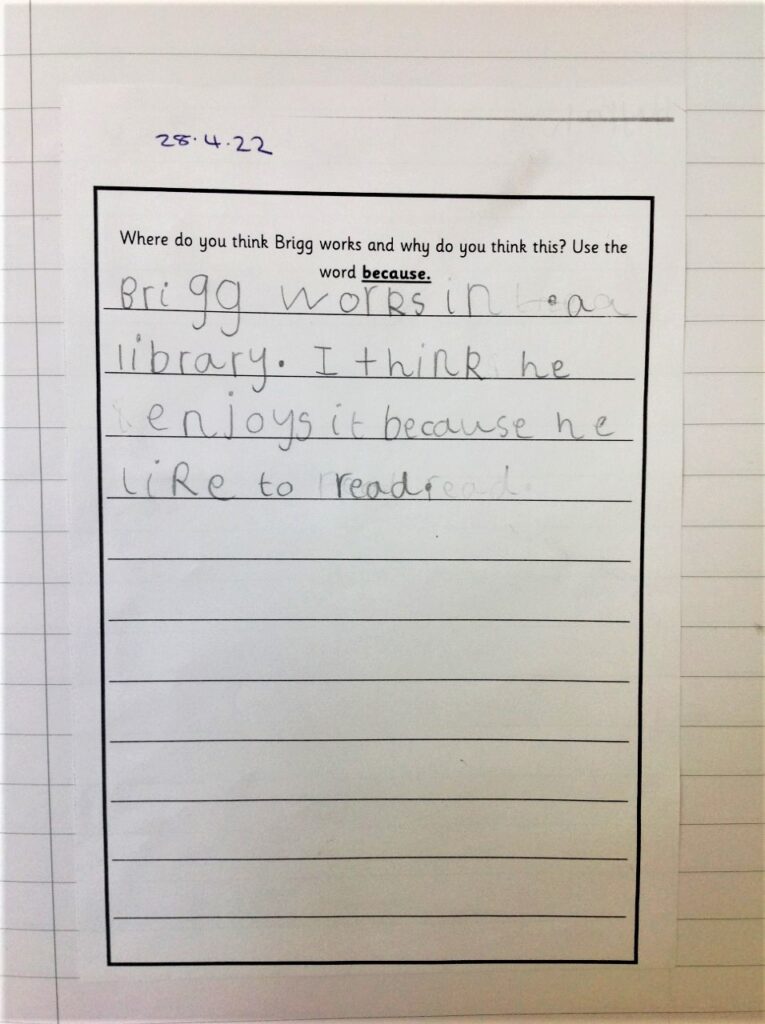 28.4.22
Where do you think Brigg works and why do you think this? Use the
word because.
Brigg works in a
library. I think he
enjoys it because he
like to read.